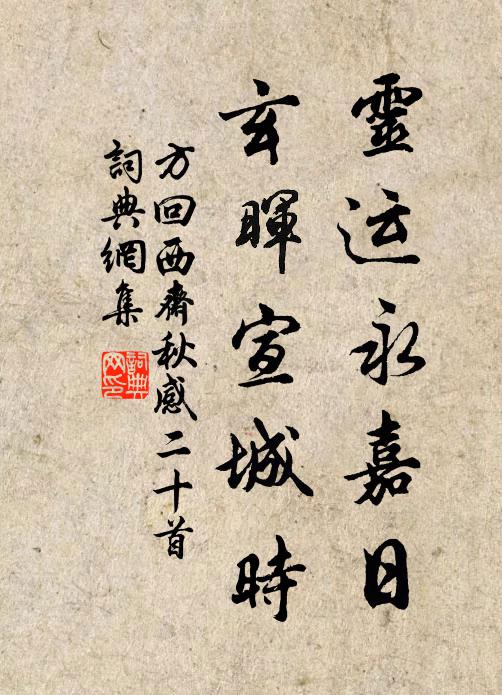 靈运永嘉日
玄暉宣城時
方回西齋秋感二十首
詞典網集
詞典网印